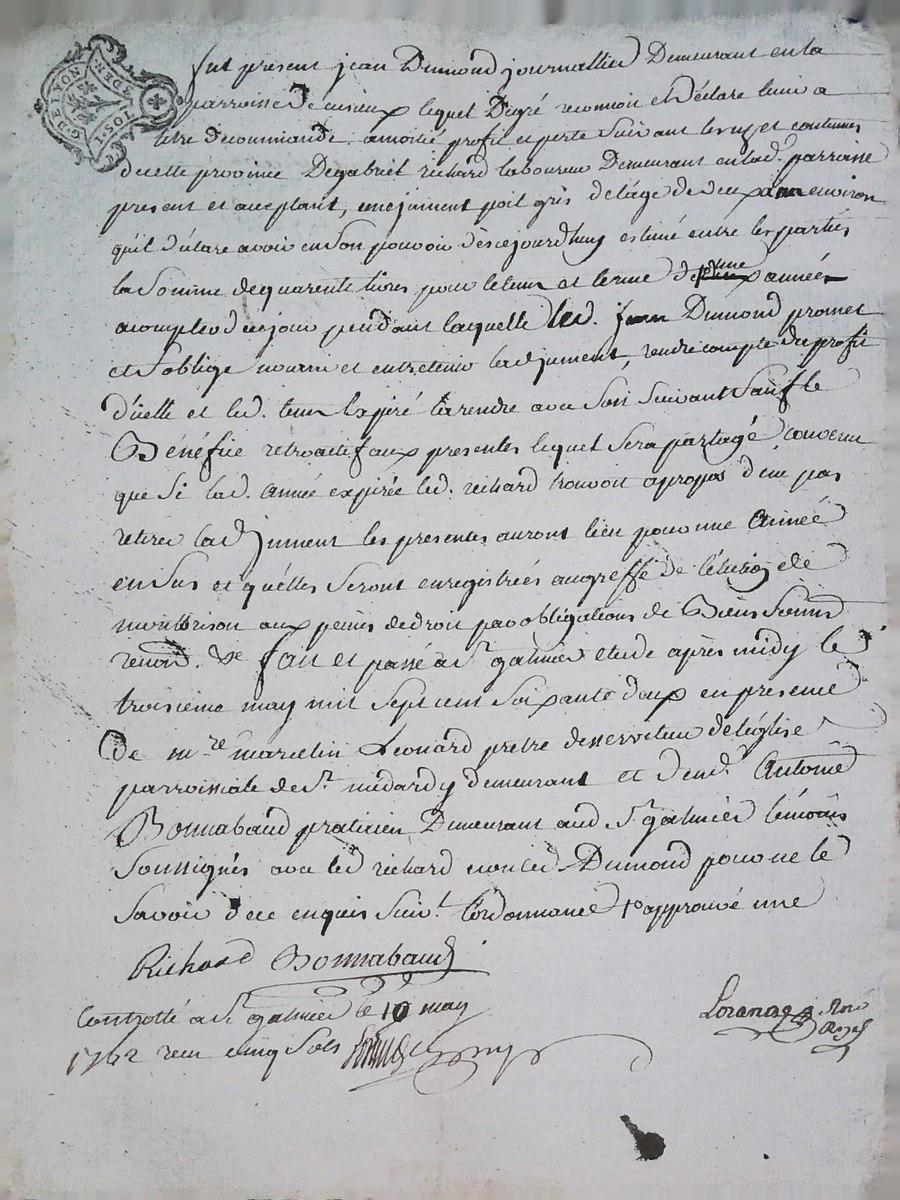 GDE LYON
NOVI
DEN.
TOSI
fut présent jean Dumond journallier Demeurant en la
parroisse de cuzieux lequel De gré reconnoit et Déclare tenir a
titre de commande amoitié profit et perte suivant les us et coutumes
de cette province De gabriel richard laboureur Demeurant en lad.e parroisse
present et acceptant, une jument poil gris de l'âge de deux ans environ
qu'il d'éclare avoir en son pouvoir dèscejourdhuy estimé entre les parties
la somme de quarente livres pour le tems et terme de une année
acompter de ce jour pendant laquelle led. jean Dumond promet
et s'oblige nourrir et entretenir lad jument, rendre compte du profit
d'icelle et led. tems expiré la rendre avec son suivant sauf le
Bénéfice retroactif aux presentes lequel sera partagé convenu
que si lad. année expirée led. richard trouvoit apropos d'ene pas
retirer lad jument les presentes auront lieu pour une année
en sus et qu'elles seront enregistrées au greffe de l'élection de
montbrison aux peines de droit par obligations de Biens soumis
renon. &c fait et passé a St galmier etude après midy le
troisième may mil sept cent soixante deux en presence
De m.re marcelin Leonard prêtre desserviteur de l'église
parroissiale de St. médard y demeurant et de m.e Antoine
Bonnabaud praticien Demeurant aud St galmier témoins
soussignés avec led richard non led. Dumond pour ne le
savoir de ce enquis suiv.t l'ordonnance approuvé une
Richard Bonnabaud
Controllé a St galmier le 10 may
1762 recu cinq sols
Loranage Nore
Royal